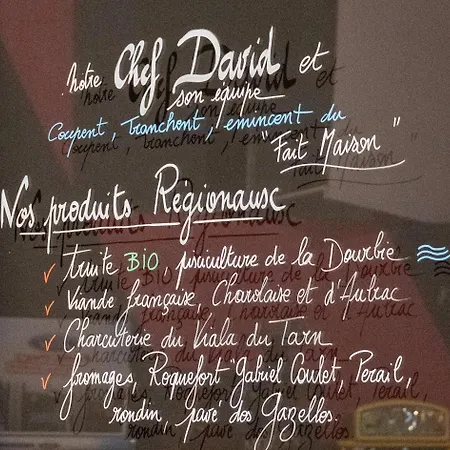 notre Chef David et
son équipe
Coupent, Tranchent, émincent du
"Fait Maison"
Nos produits Regionaux
truite BIO, pisciculture de la Dourbie
Viande française, Charolaise et d'Aubrac
Charcuterie du Viala du Tarn
fromages, Roquefort Gabriel Coulet, Perail,
rondin, pavé des Gazelles.